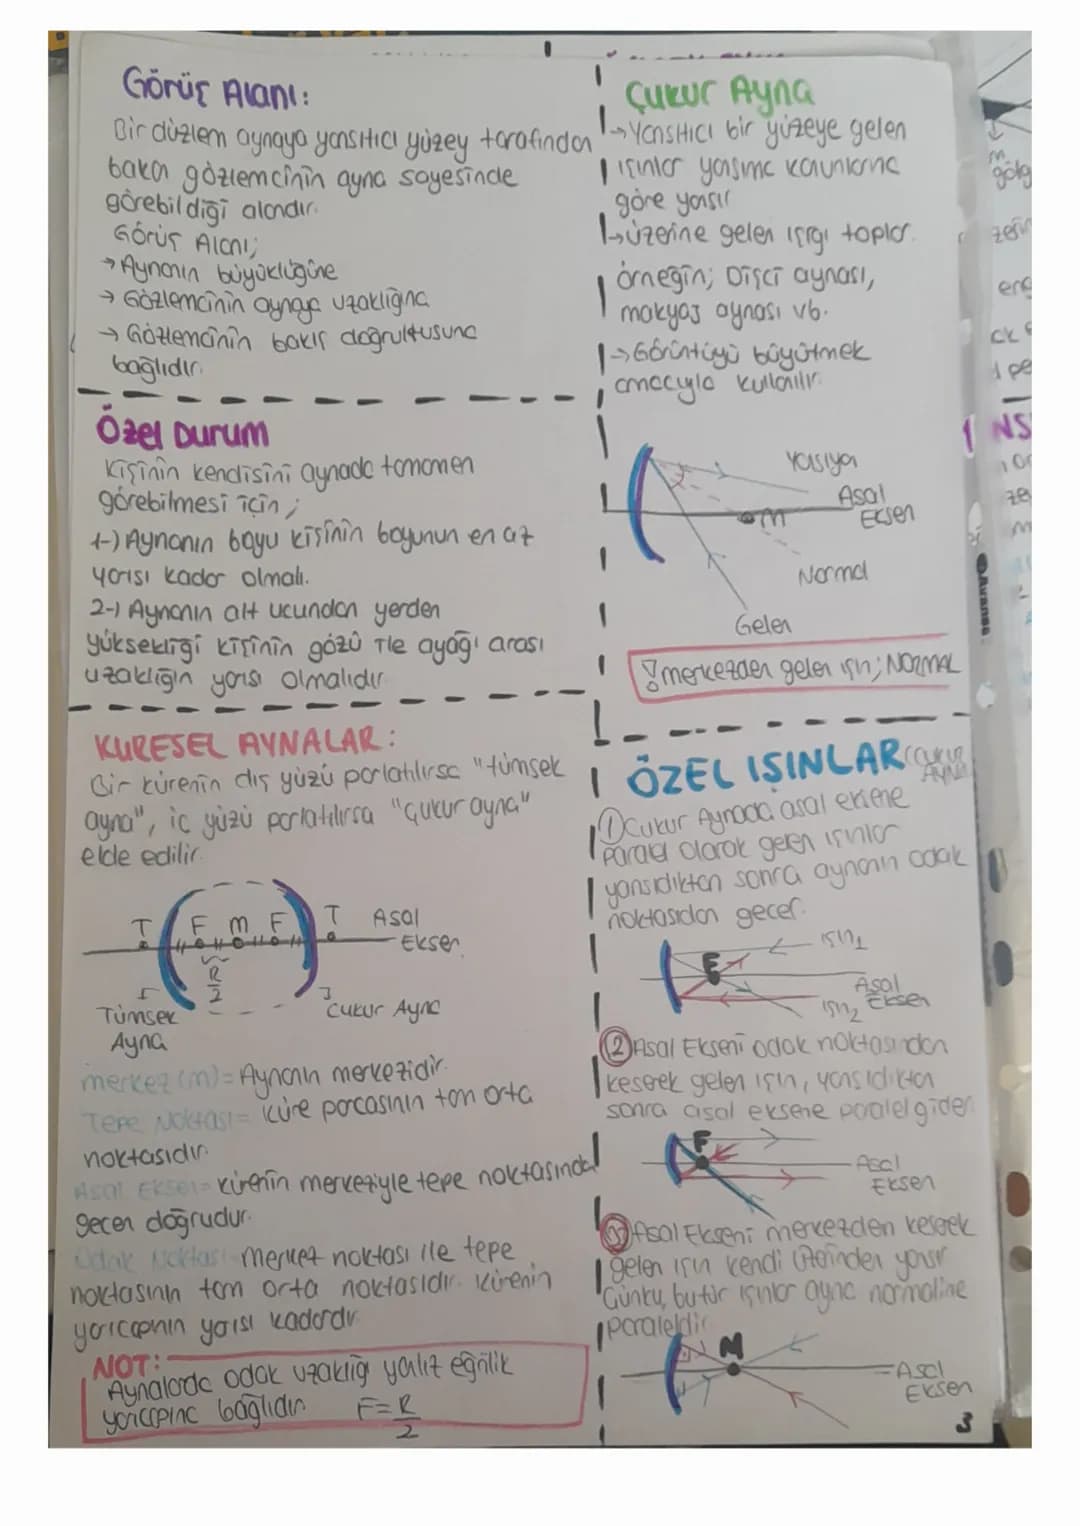 Görüş Alanı:
Bir düzlem aynaya yansıtıcı yüzey tarafından
bakan gözlemcinin ayna sayesinde
görebildiği alandır.
Görüş Alanı;
→ Aynanın büyüklüğüne
→ Gözlemcinin aynaya uzaklığına
→ Gözlemcinin bakış doğrultusuna
bağlıdır.
Özel Durum
Kişinin kendisini aynada tamamen
görebilmesi için;
1-) Aynanın boyu kişinin boyunun en az
yarısı kadar olmalı.
2-) Aynanın alt ucundan yerden
yüksekliği kişinin gözü ile ayağı arası
uzaklığın yarısı olmalıdır.
KÜRESEL AYNALAR:
Bir kürenin dış yüzü parlatılırsa "tümsek
ayna", iç yüzü parlatılırsa "çukur ayna"
elde edilir.
T F M F T Asal
Eksen
R
2
Tümsek
Ayna
Çukur Ayna
merkez (m)= Aynanın merkezidir.
Tepe Noktası= küre parçasının tam orta
noktasıdır.
Asal Eksen= kürenin merkeziyle tepe noktasından
geçen doğrudur.
Odak Noktası= merkez noktası ile tepe
noktasının tam orta noktasıdır. Kürenin
yarıçapının yarısı kadardır.
NOT:
Aynalarda odak uzaklığı yalnız eğrilik
yarıçapına bağlıdır. F=R
2
Çukur Ayna
→ Yansıtıcı bir yüzeye gelen
ışınlar yansıma kanunlarına
göre yansır
→ üzerine gelen ışığı toplar.
örneğin; Dişçi aynası,
makyaj aynası vb.
→ Görüntüyü büyütmek
amacıyla kullanılır.
Yansıyan
Asal
Eksen
m
Normal
Gelen
! merkezden gelen ışın; NORMAL
ÖZEL IŞINLAR (ÇUKUR
AYNA)
① Çukur Aynada asal eksene
Paralel olarak gelen ışınlar
yansıdıktan sonra aynanın odak
noktasından geçer.
ışın1
F
Asal
Eksen
ışın2
② Asal Ekseni odak noktasından
keserek gelen ışın, yansıdıktan
sonra asal eksene paralel gider.
F
Asal
Eksen
③ Asal Ekseni merkezden keserek
gelen ışın kendi üzerinden yansır
Çünkü, bu tür ışınlar ayna normaline
paraleldir.
M
Asal
Eksen
3